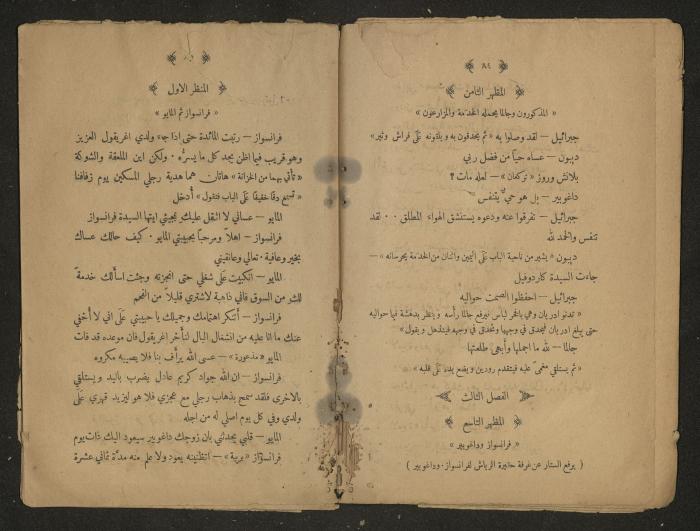 ٨٤
المظهر الثامن
« المذكورون وجالما يحمله الخدمة والمزارعون »
جبرائيل — لقد وصلوا به « ثم يحدقون به ويلقونه على فراش وثير »
ديبون — عساه حياً من فضل ربي
بلانش وروز « تركعان » — لعله مات ؟
داغوبير — بل هو حيٌّ يتنفس
جبرائيل — تفرقوا عنه ودعوه يستنشق الهواء المطلق ٠٠ لقد
تنفس والحمد لله
ديبون « يشير من ناحية الباب على اليمين واثنان من الخدمة يحرسانه » —
جاءت السيدة كاردوفيل
جبرائيل — احفظوا الصمت حواليه
« تدنو ادريان وهي بالخمر لباس فيرفع جالما رأسه وينظر بدهشة فيما حواليه
حتى يبلغ ادريان فيحدق في وجهها وتحدق في وجهه فينذهل ويقول »
جالما — لله ما اجملها وأبهى طلعتها
« ثم يستلقي مغمىً عليه فيتقدم رودين ويضع يده على قلبه »
الفصل الثالث
المظهر التاسع
« فرانسواز وداغوبير »
( يرفع الستار عن غرفة حقيرة الرياش لفرانسواز وداغوبير )
المنظر الاول
« فرانسواز ثم المايو »
فرانسواز — رتبت المائدة حتى اذا جاء ولدي اغريقول العزيز
وهو قريب فيما اظن يجد كل ما يسرُّه ٠ ولكن اين الملعقة والشوكة
« تأتي بهما من الخزانة » هاتان هما هدية رجلي المسكين يوم زفافنا
« تسمع دقاً خفيفاً على الباب فتقول » أدخل
المايو — عساني لا اثقل عليكِ بمجيئي ايتها السيدة فرانسواز
فرانسواز — اهلاً ومرحباً بحبيبتي المايو ٠ كيف حالك عساك
بخير وعافية ٠ تعالي وعانقيني
المايو — انكببت على شغلي حتى انجزته وجئت اسألك خدمةً
للشر من السوق فاني ذاهبة لاشتري قليلاً من الفحم
فرانسواز — أشكر اهتمامك وجميلك يا حبيبتي على اني لا أخفي
عنك ما انا عليه من انشغال البال لتأخر اغريقول فان موعده قد فات
المايو « مذعورة » — عسى الله يرأف بنا فلا يصيبه مكروه
فرانسواز — ان الله جواد كريم عادل يضرب باليد ويستلقي
بالاخرى فلقد سمح بذهاب رجلي مع عجزي فلا هو ليزيد قهري على
ولدي وفي كل يوم اصلي له من اجله
المايو — قلبي يحدثني بان زوجك داغوبير سيعود اليك ذات يوم
فرانسواز « برية » — اتظنينه يعود ولا علم منه مدة ثماني عشرة